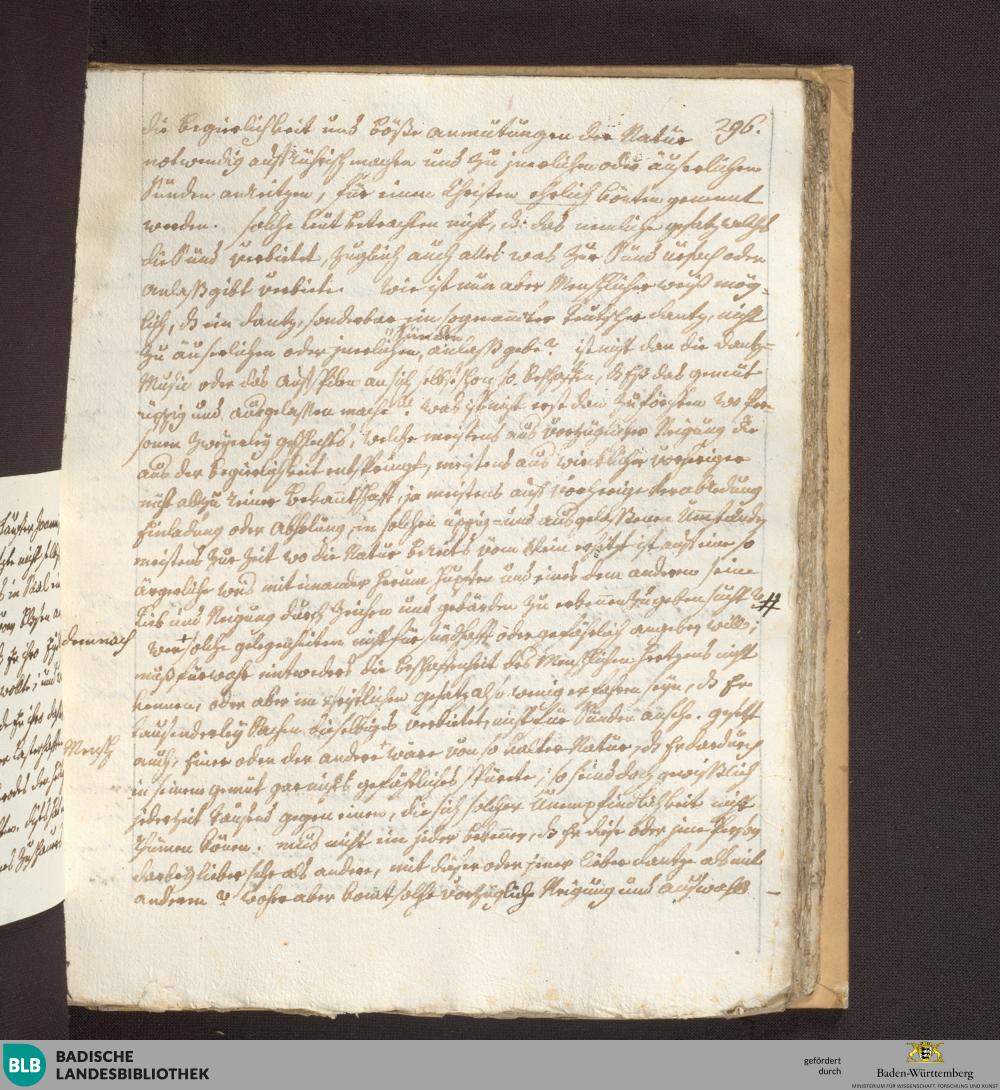 296.
die begierlichkeit und böße anmutungen der Natur
notwendig aufrührisch machen und zu jnerlichen oder äuserlichen
Sünden anreitzen, für einen Christen ehrlich könten genennt
werden. solche leut betrachten nicht, dß das nemliche gesetz welches
die Sünd verbietet, zugleich auch alles was zur Sünd ursach oder
anlaß gibt verbiete. wie ist nun aber Menschlicher weiß mög-
lich, dß ein dantz, sonderbar ein sogenannter teutscher dantz, nicht
zu äuserlichen oder jnerlichen Sünden anlaß gebe? ist nicht dan die dantz-
Music oder das aufspilen an sich selbst schon so beschaffen, dß es das gemüt
üppig und ausgelassen mache? was ist nicht erst dan zu förchten wo Per-
sonen zweyerley geschlechts, welche meistens aus vorzüglicher Neigung die
aus der begierlichkeit entspringt, meistens aus würcklicher voriger
nicht allzu reiner bekantschafft, ja meistens auf vorherige verabredung
Einladung oder abholung, in solchen üppig- und ausgelaßenen Umständen
meistens zur zeit wo die Natur bereits vom Wein erhitzt ist auf eine so
ärgerliche weis mit einander herum hupfen und eines dem anderen seine
lieb und Neigung durch zeichen und gebärden zu erkennen zugeben sucht #
demnach
wer + solche gelegenheiten nicht für sündhafft oder gefährlich angeben will,
muß fürwahr entweders die beschaffenheit des Menschlichen hertzens nicht
kennen, oder aber im christlichen gesetz als wenig erfahren seyn, dß Er
tausenderley Sachen, die selbiges verbietet, nicht für Sünden ansehe. gesetzt
Mensch
auch, Einer oder der andere + wäre von so kalter Natur, dß Er dardurch
in seinem gemüt gar nichts gefährliches spürete; so seind doch gewißlich
jederzeit tausend gegen einen, die sich solcher Unempfindlichkeit nicht
rühmen könen. mus nicht ein jeder bekenen, dß Er diese oder jene Person
darbey lieber sehe als andere, mit dieser oder jener lieber dantze als mit
anderen? woher aber komt solche vorzügliche Neigung und auswahl
BLB
BADISCHE
LANDESBIBLIOTHEK
gefördert
durch
Baden-Württemberg
MINISTERIUM FÜR WISSENSCHAFT, FORSCHUNG UND KUNST